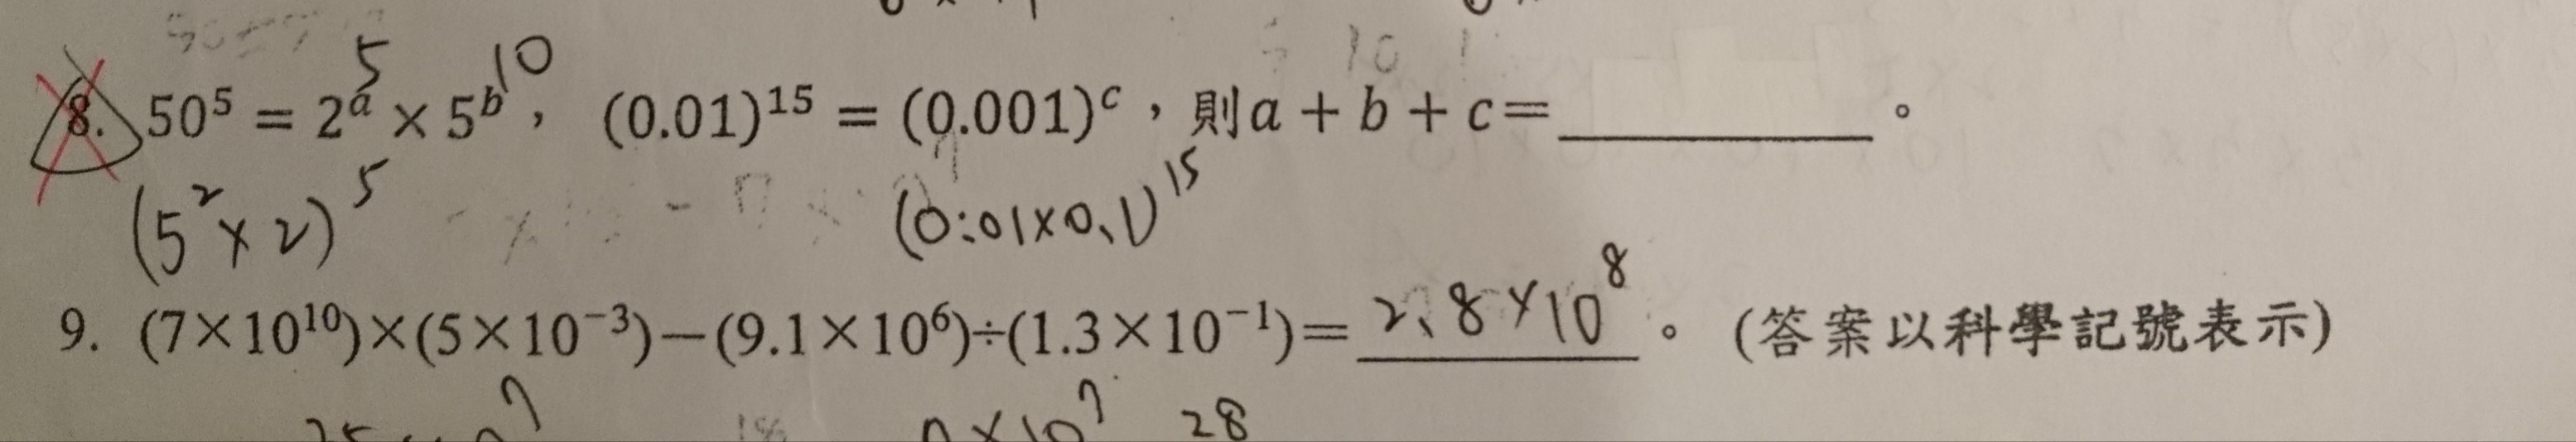 5 10
8. 50⁵ = 2ᵃ × 5ᵇ, (0.01)¹⁵ = (0.001)ᶜ,則a + b + c=________。
(5²×2)⁵ (0.01×0.1)¹⁵
9. (7×10¹⁰)×(5×10⁻³)−(9.1×10⁶)÷(1.3×10⁻¹)= 2.8×10⁸。(答案以科學記號表示)
28